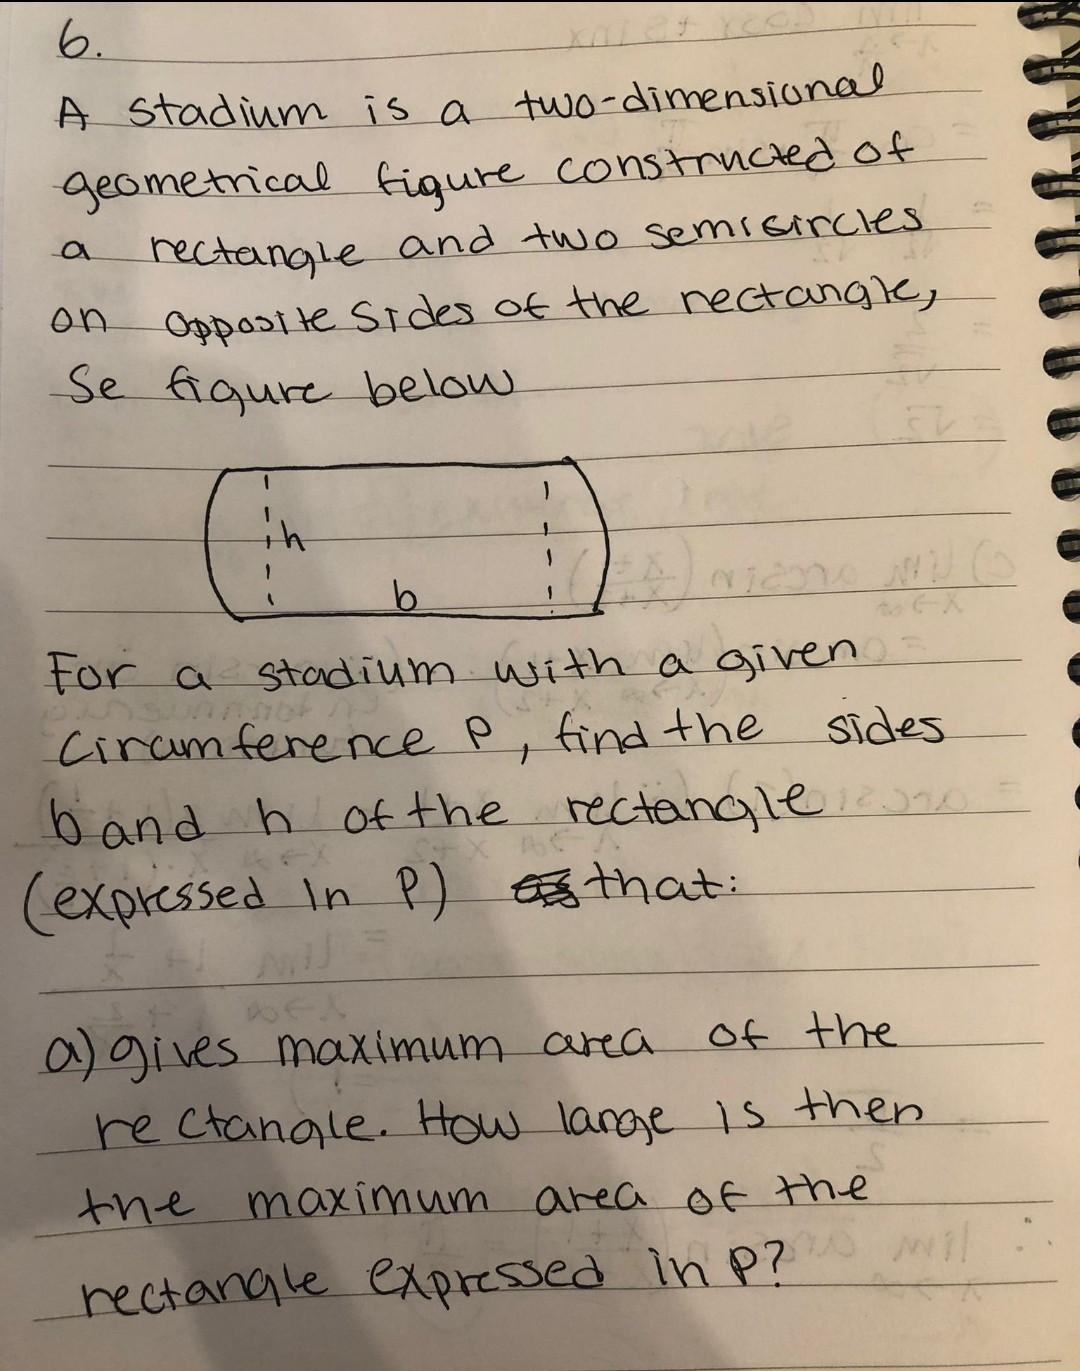 6.
A stadium is a two-dimensional
geometrical figure constructed of
a rectangle and two semicircles
on opposite sides of the rectangle,
Se figure below
h
b
For a stadium with a given
Circumference P, find the sides
b and h of the rectangle
(expressed in P) that:
a) gives maximum area of the
rectangle. How large is then
the maximum area of the
rectangle expressed in P?